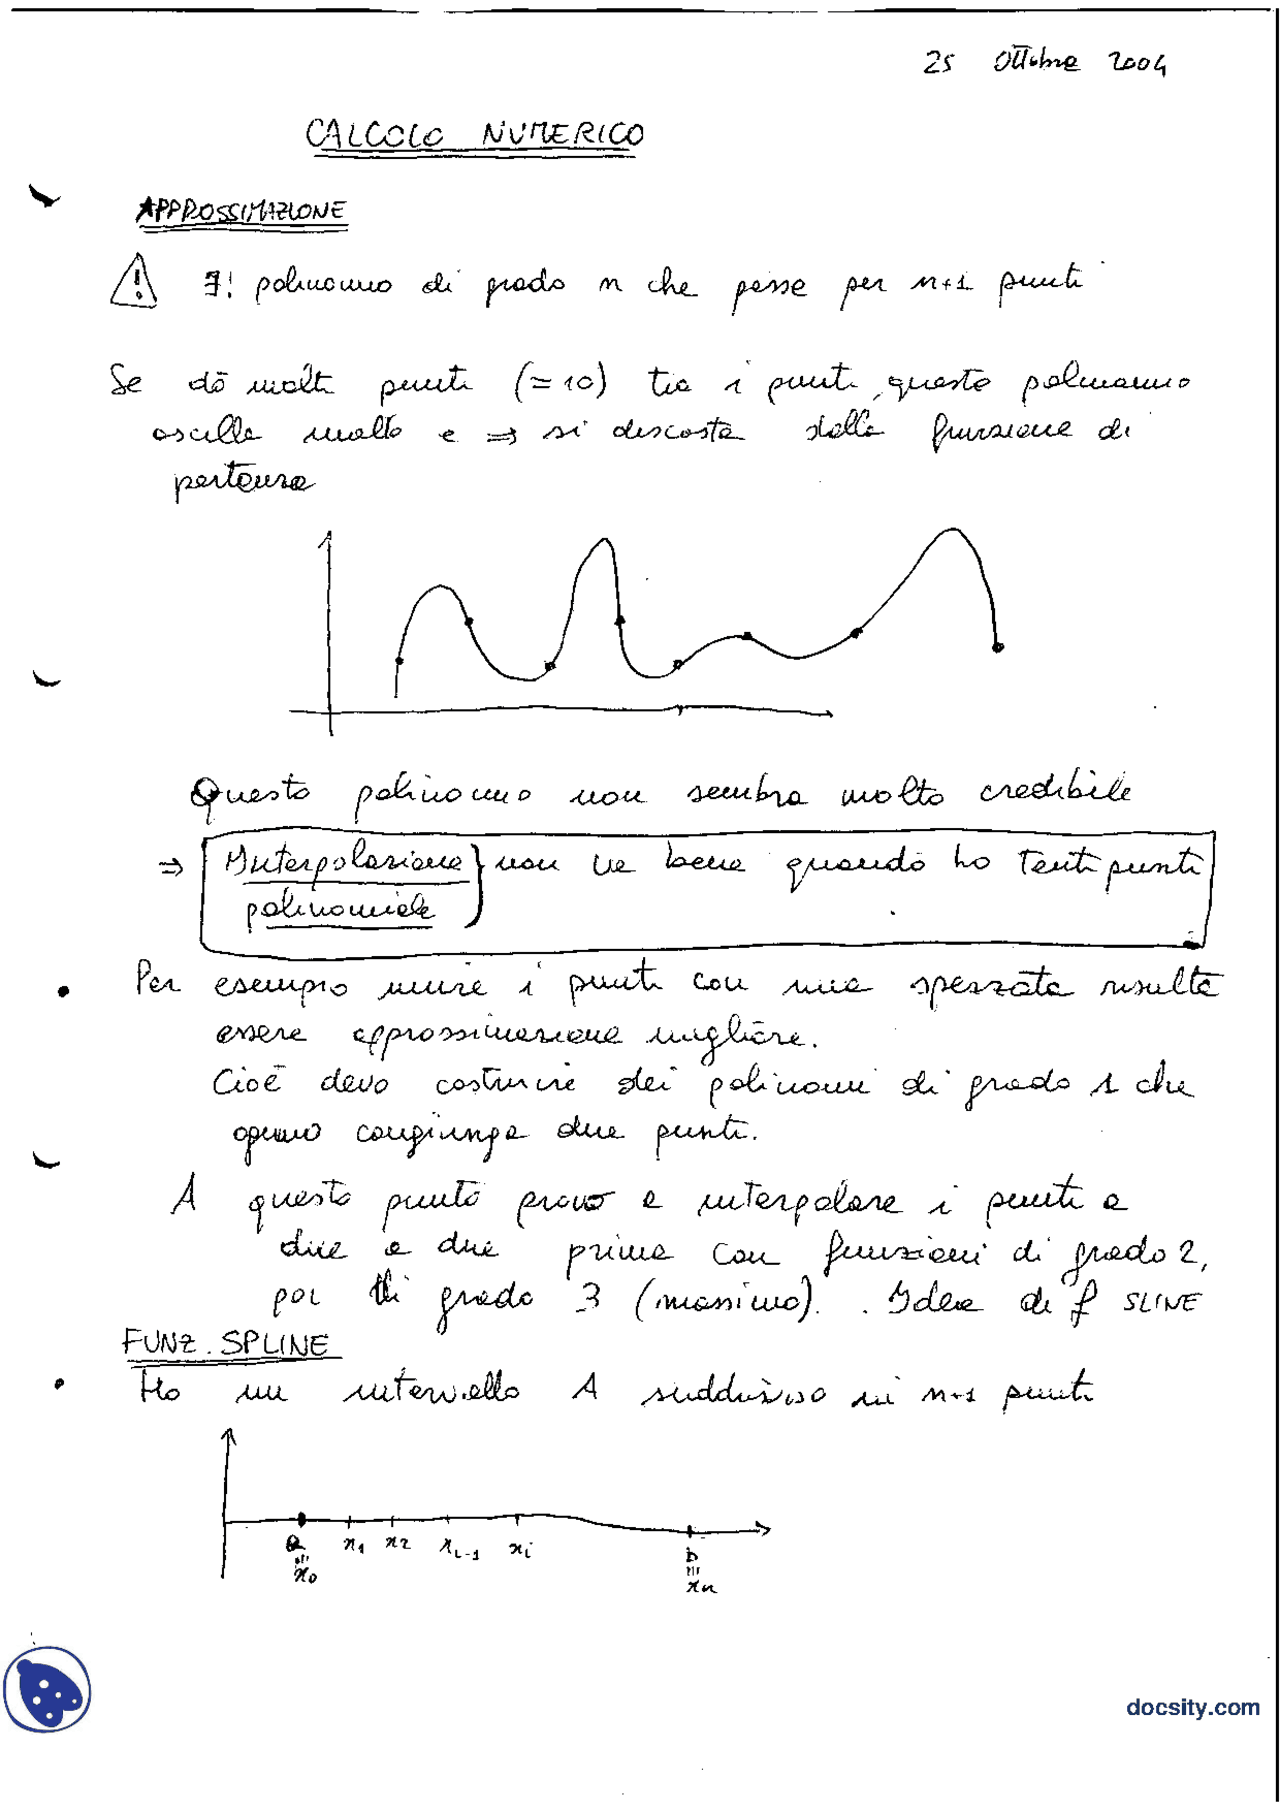 25 Ottobre 2004
CALCOLO NUMERICO
APPROSSIMAZIONE
! ∃! polinomio di grado n che passa per n+1 punti
Se dò molti punti (≃10) tra i punti questo polinomio
oscilla molto e ⇒ si discosta dalla funzione di
partenza
Questo polinomio non sembra molto credibile
⇒ Interpolazione } non va bene quando ho tanti punti
polinomiale
• Per esempio unire i punti con una spezzata risulta
essere approssimazione migliore.
Cioè devo costruire dei polinomi di grado 1 che
ognuno congiunga due punti.
A questo punto provo a interpolare i punti a
due a due prima con funzioni di grado 2,
poi di grado 3 (massimo). Idea di f SLINE
FUNZ. SPLINE
• Ho un intervallo A suddiviso in n+1 punti
a x1 x2 xi-1 xi b
≡ ≡
x0 xn
docsity.com